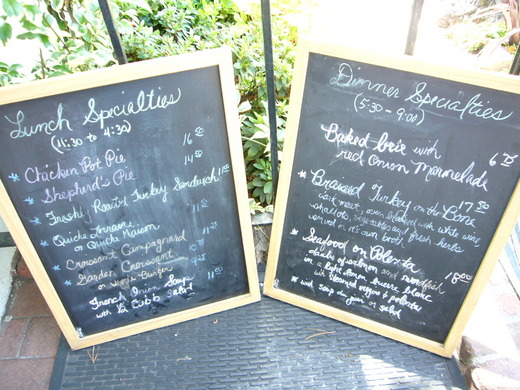 Lunch Specialties
(11:30 to 4:30)
* Chicken Pot Pie 16
* Shepherd's Pie 14
* Freshly Roasted Turkey Sandwich
* Quiche
or Quiche Maison
* Croissant Campagnard
* Garden Croissant
or Burger
French Onion Soup
with 1/2 Cobb Salad
Dinner Specialties
(5:30 - 9:00)
Baked brie with 6
red onion Marmelade
* Braised Turkey on the Bone 17
dark meat, oven braised with white wine
shallots, and fresh herbs
served in its own broth
* Seafood on Polenta 18
of salmon and
in a light lemon beurre blanc
w/ steamed veggies & polenta
* w/ soup du jour or salad